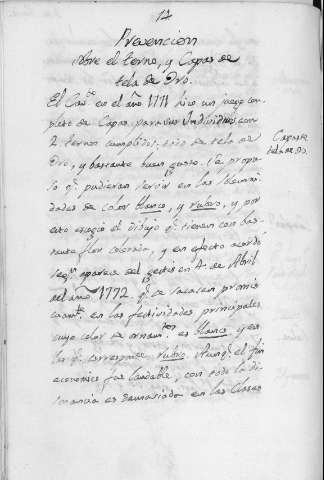 12
Prevencion
sobre el terno, y Capas de
tela de Oro.
El Cav.º en el año 1771 hizo un juego com-
pleto de Capas para sus Individuos con
2 ternos cumplidos, todo de tela de
Oro, y bastante buen gusto. Se propu-
so q.e pudieran servir en las solemni-
dades de color blanco, y rubro, y por
esto escogio el dibujo q.e tienen con bas-
tante flor colorada, y en efecto acordó
segun aparece del gestis en 4 de Abril
del año 1772 q.e se sacasen promis
cuam.te en las festividades principales
cuyo color de ornam.tos es blanco, y en
las q.e corresponde rubro. Aunq.e el fin
economico fue laudable, con todo la di-
sonancia es demasiada en las Clases
Capas de
tela de Oro.